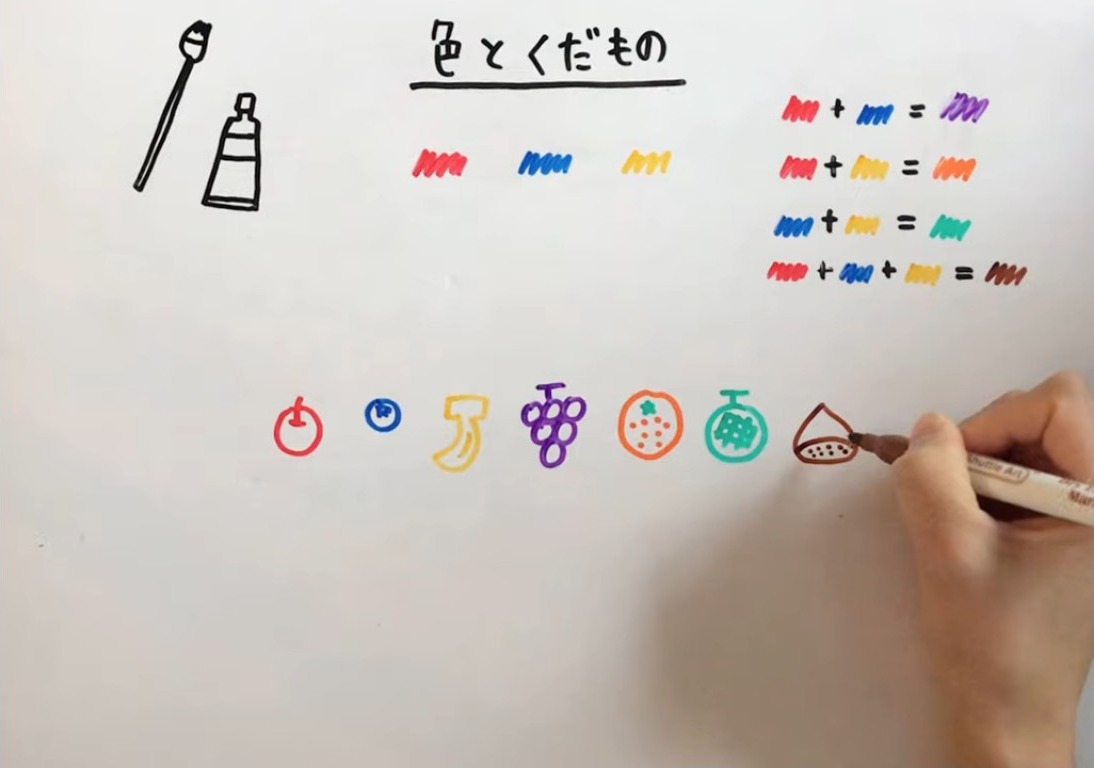 色とくだもの
+ =
+ =
+ =
+ + =
Shuttle Art